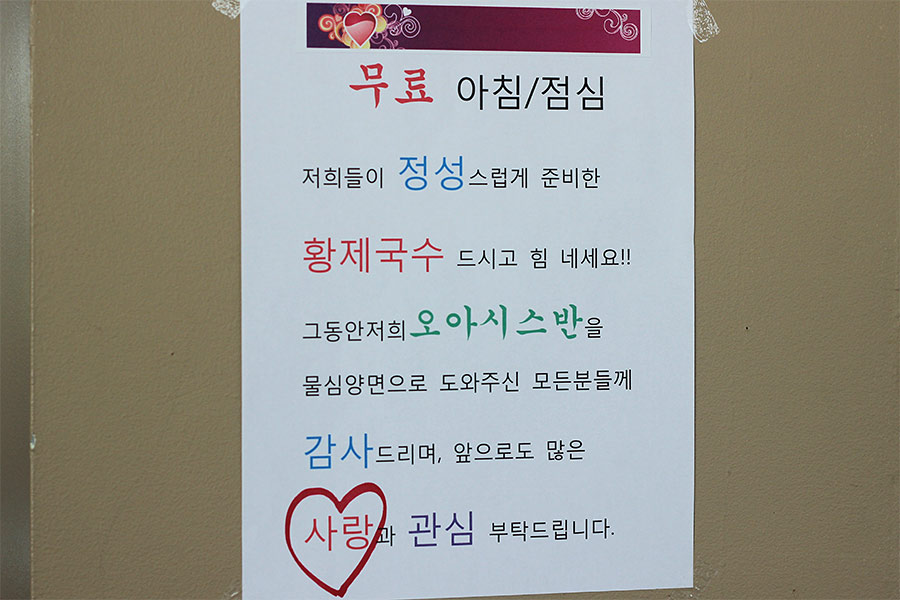 무료 아침/점심
저희들이 정성스럽게 준비한
황제국수 드시고 힘 네세요!!
그동안저희오아시스반을
물심양면으로 도와주신 모든분들께
감사드리며, 앞으로도 많은
사랑과 관심 부탁드립니다.